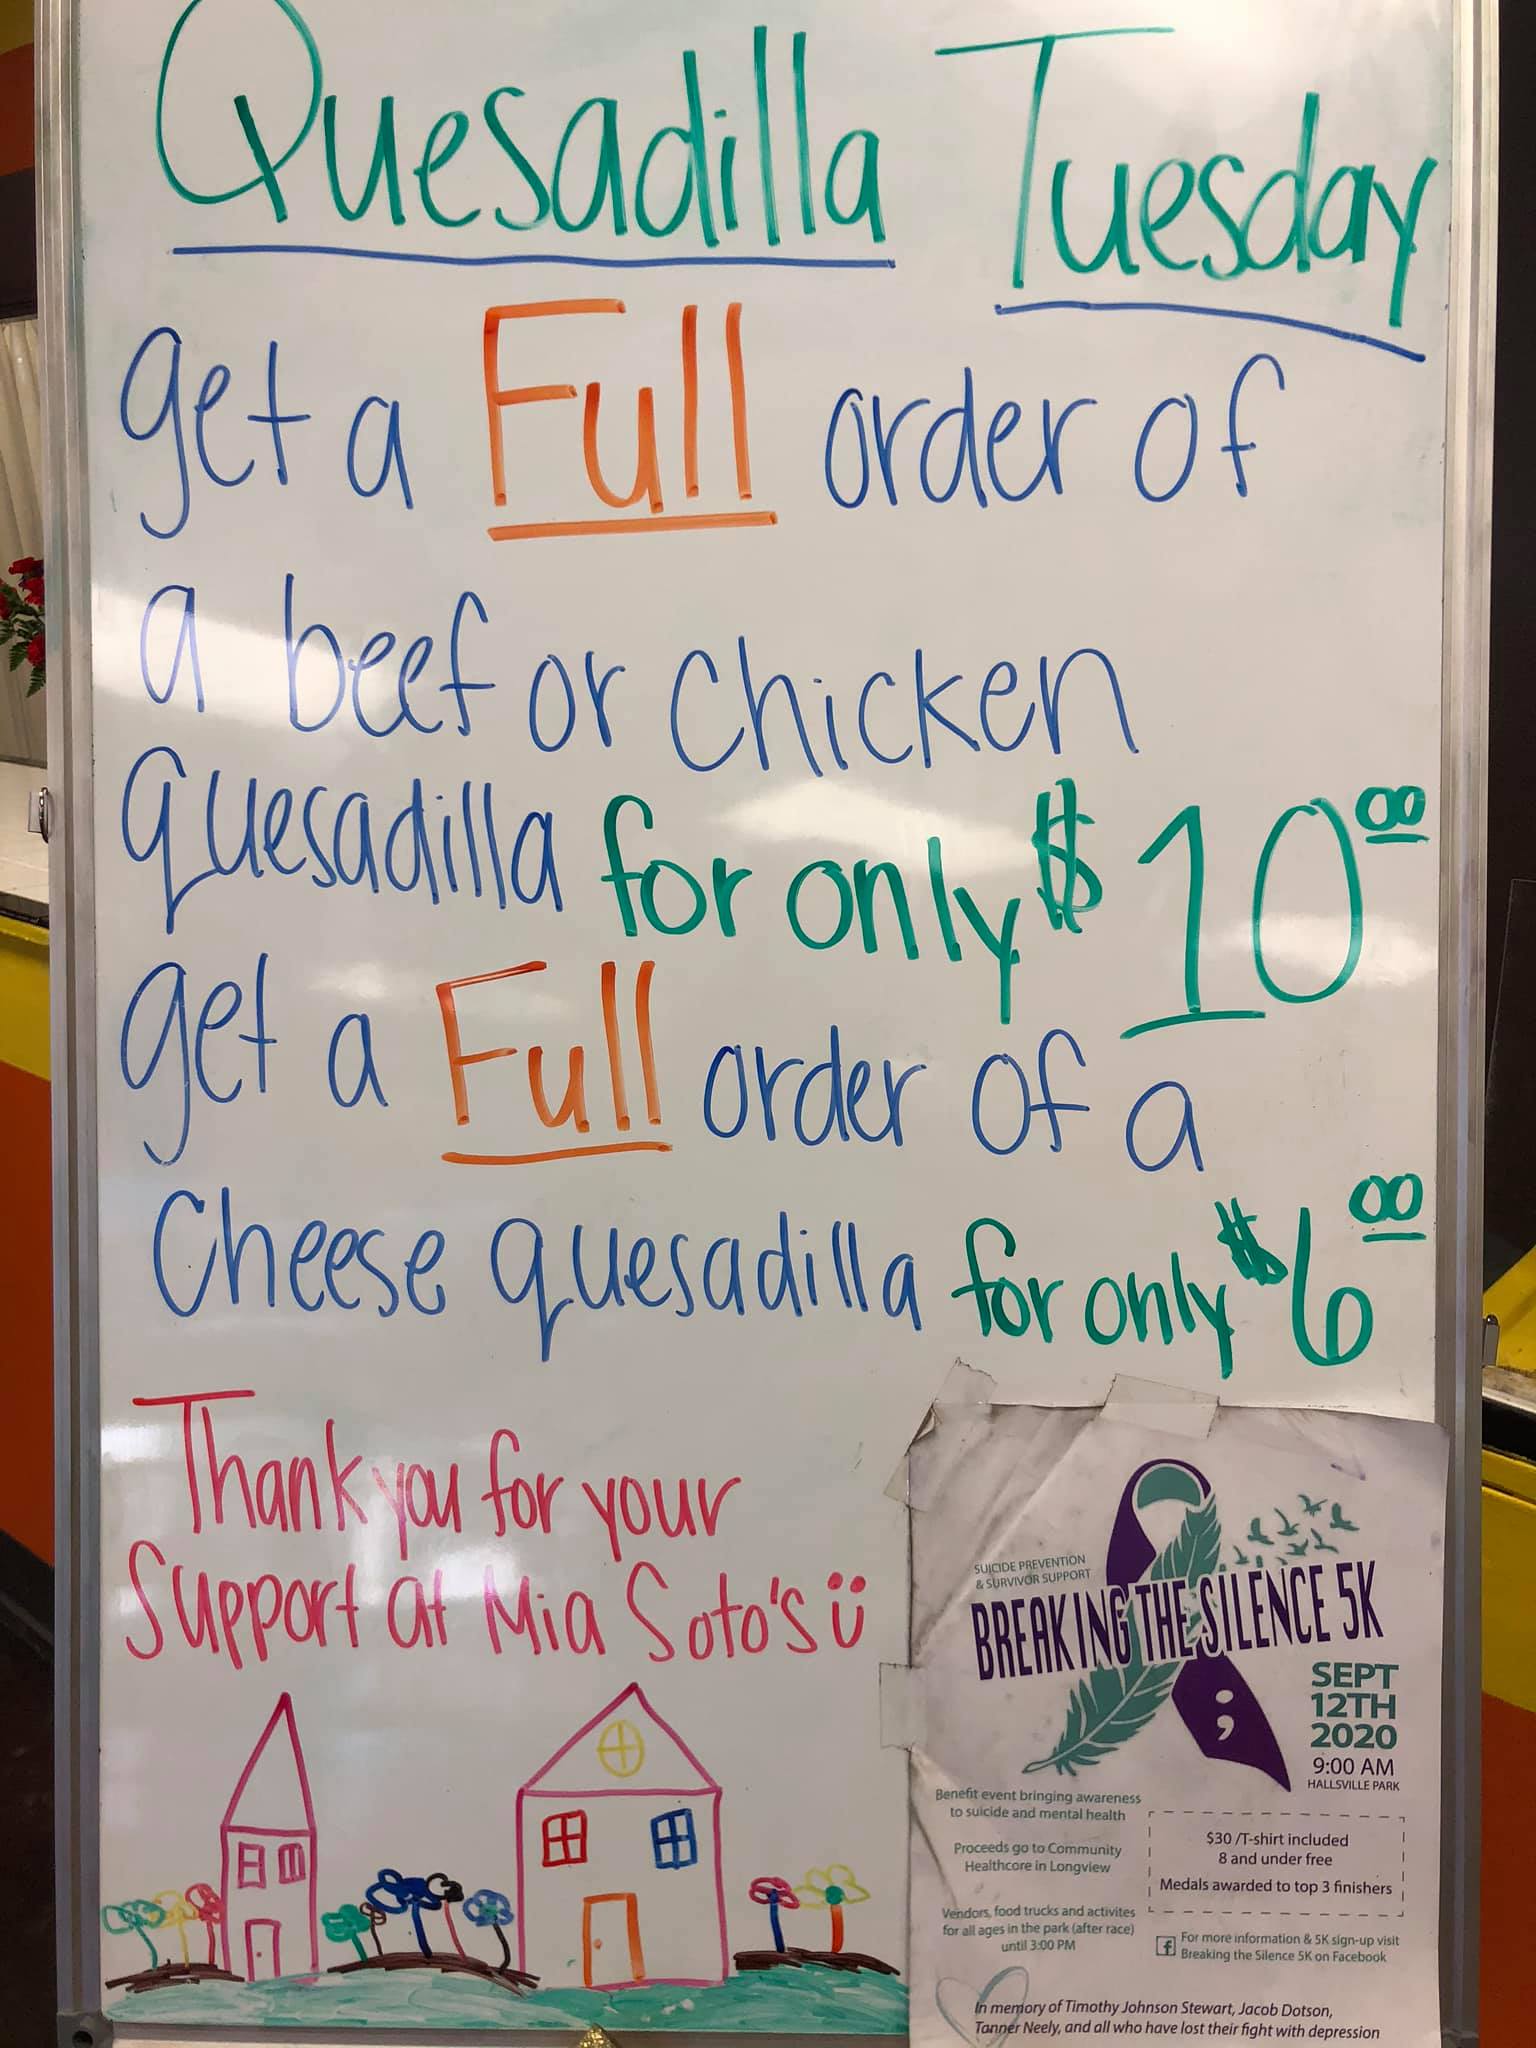 Quesadilla Tuesday
get a Full order of
a beef or chicken
quesadilla for only $10.00
get a Full order of a
Cheese quesadilla for only $6.00
Thank you for your
Support at Mia Soto's
SUICIDE PREVENTION
& SURVIVOR SUPPORT
BREAKING THE SILENCE 5K
SEPT
12TH
2020
9:00 AM
HALLSVILLE PARK
Benefit event bringing awareness
to suicide and mental health
Proceeds go to Community
Healthcore in Longview
Vendors, food trucks and activites
for all ages in the park (after race)
until 3:00 PM
$30 /T-shirt included
8 and under free
Medals awarded to top 3 finishers
For more information & 5K sign-up visit
Breaking the Silence 5K on Facebook
In memory of Timothy Johnson Stewart, Jacob Dotson,
Tanner Neely, and all who have lost their fight with depression